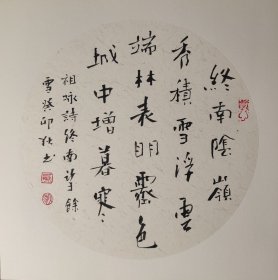 終南陰嶺
秀積雪浮雲
端林表明霽色
城中增暮寒
祖咏詩終南望餘
雪癸卯秋书